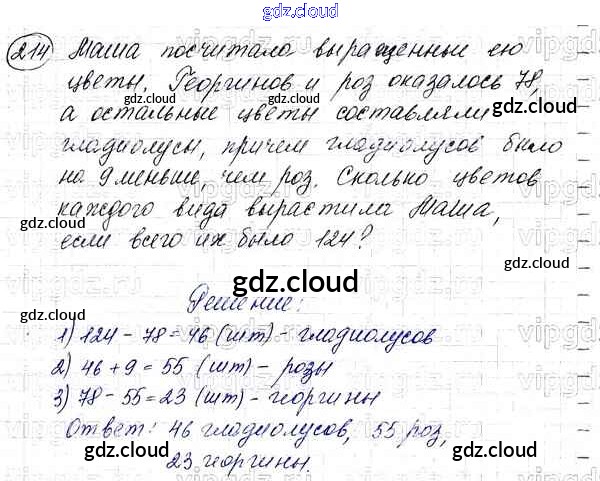 gdz.cloud
214 Маша посчитала выращенные ею
цветы. Георгинов и роз оказалось 78,
а остальные цветы составляли
гладиолусы, причем гладиолусов было
на 9 меньше, чем роз. Сколько цветов
каждого вида вырастила Маша,
если всего их было 124?
gdz.cloud
Решение:
1) 124 - 78 = 46 (шт) - гладиолусов
2) 46 + 9 = 55 (шт) - розы
3) 78 - 55 = 23 (шт) - георгины
Ответ: 46 гладиолусов, 55 роз,
23 георгины.
gdz.cloud